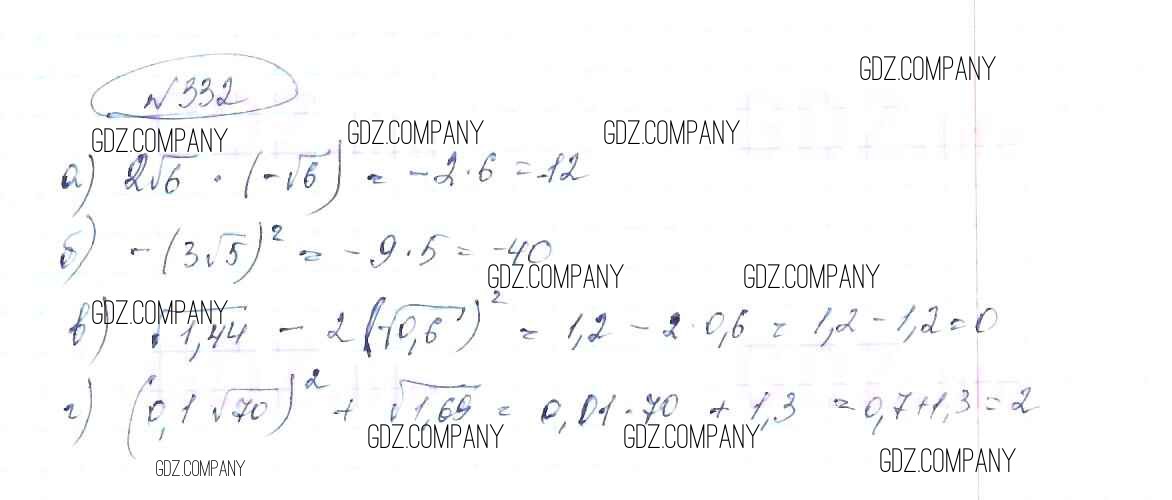 GDZ.COMPANY
№332
GDZ.COMPANY GDZ.COMPANY GDZ.COMPANY
а) 2√6 · (-√6) = -2·6 = -12
б) -(3√5)² = -9·5 = -40
GDZ.COMPANY GDZ.COMPANY
GDZ.COMPANY
в) √1,44 - 2(√0,6)² = 1,2 - 2·0,6 = 1,2 - 1,2 = 0
г) (0,1√70)² + √1,69 = 0,01·70 + 1,3 = 0,7+1,3 = 2
GDZ.COMPANY GDZ.COMPANY
GDZ.COMPANY GDZ.COMPANY